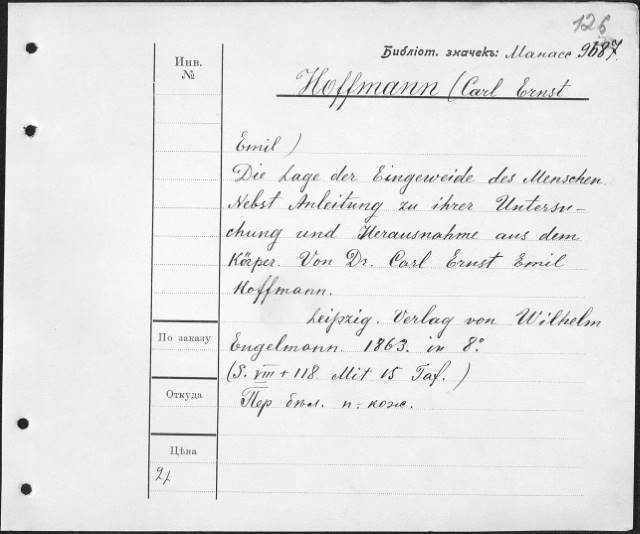 126
Библіот. значекъ: Манасс 9687.
Инв.
№
Hoffmann (Carl Ernst
Emil)
Die Lage der Eingeweide des Menschen.
Nebst Anleitung zu ihrer Untersu-
chung und Herausnahme aus dem
Körper. Von Dr. Carl Ernst Emil
Hoffmann.
Leipzig. Verlag von Wilhelm
По заказу
Engelmann. 1863. in 8°.
(S. VIII + 118. Mit 15 Taf.)
Откуда
Пер бѣл. п.-кож.
Цѣна